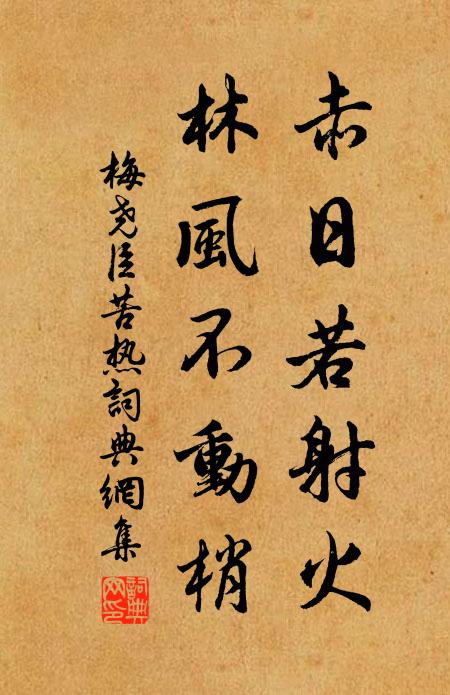 赤日若射火
林風不動梢
梅尧臣苦热詞典網集
詞典網印